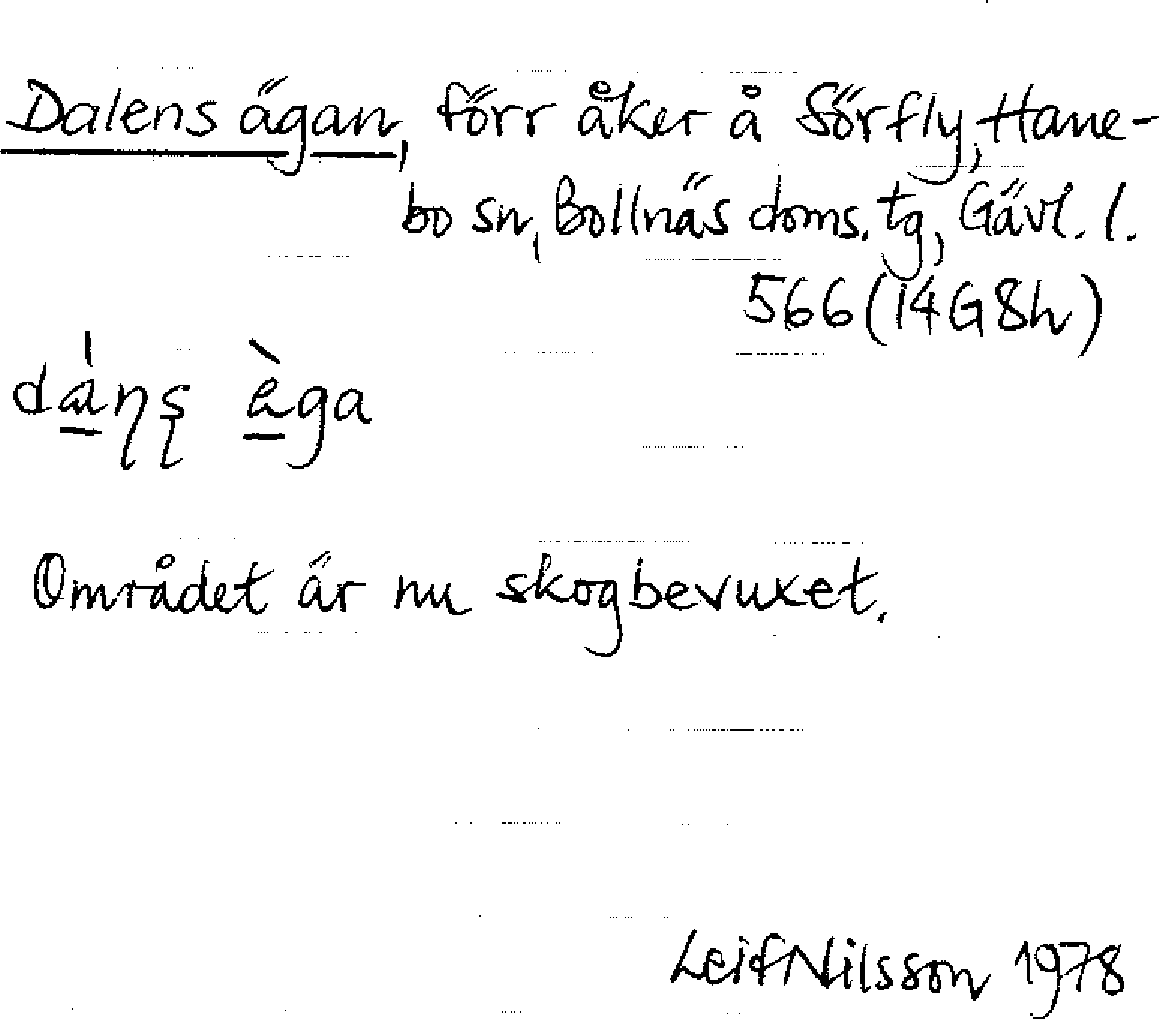 Dalens ägan, förr åker å Sörfly, Hane-
bo sn, Bollnäs doms. tg, Gävl. l.
566 (14G8h)
dá̱ɳʂ è̱ga
Området är nu skogbevuxet.
Leif Nilsson 1978